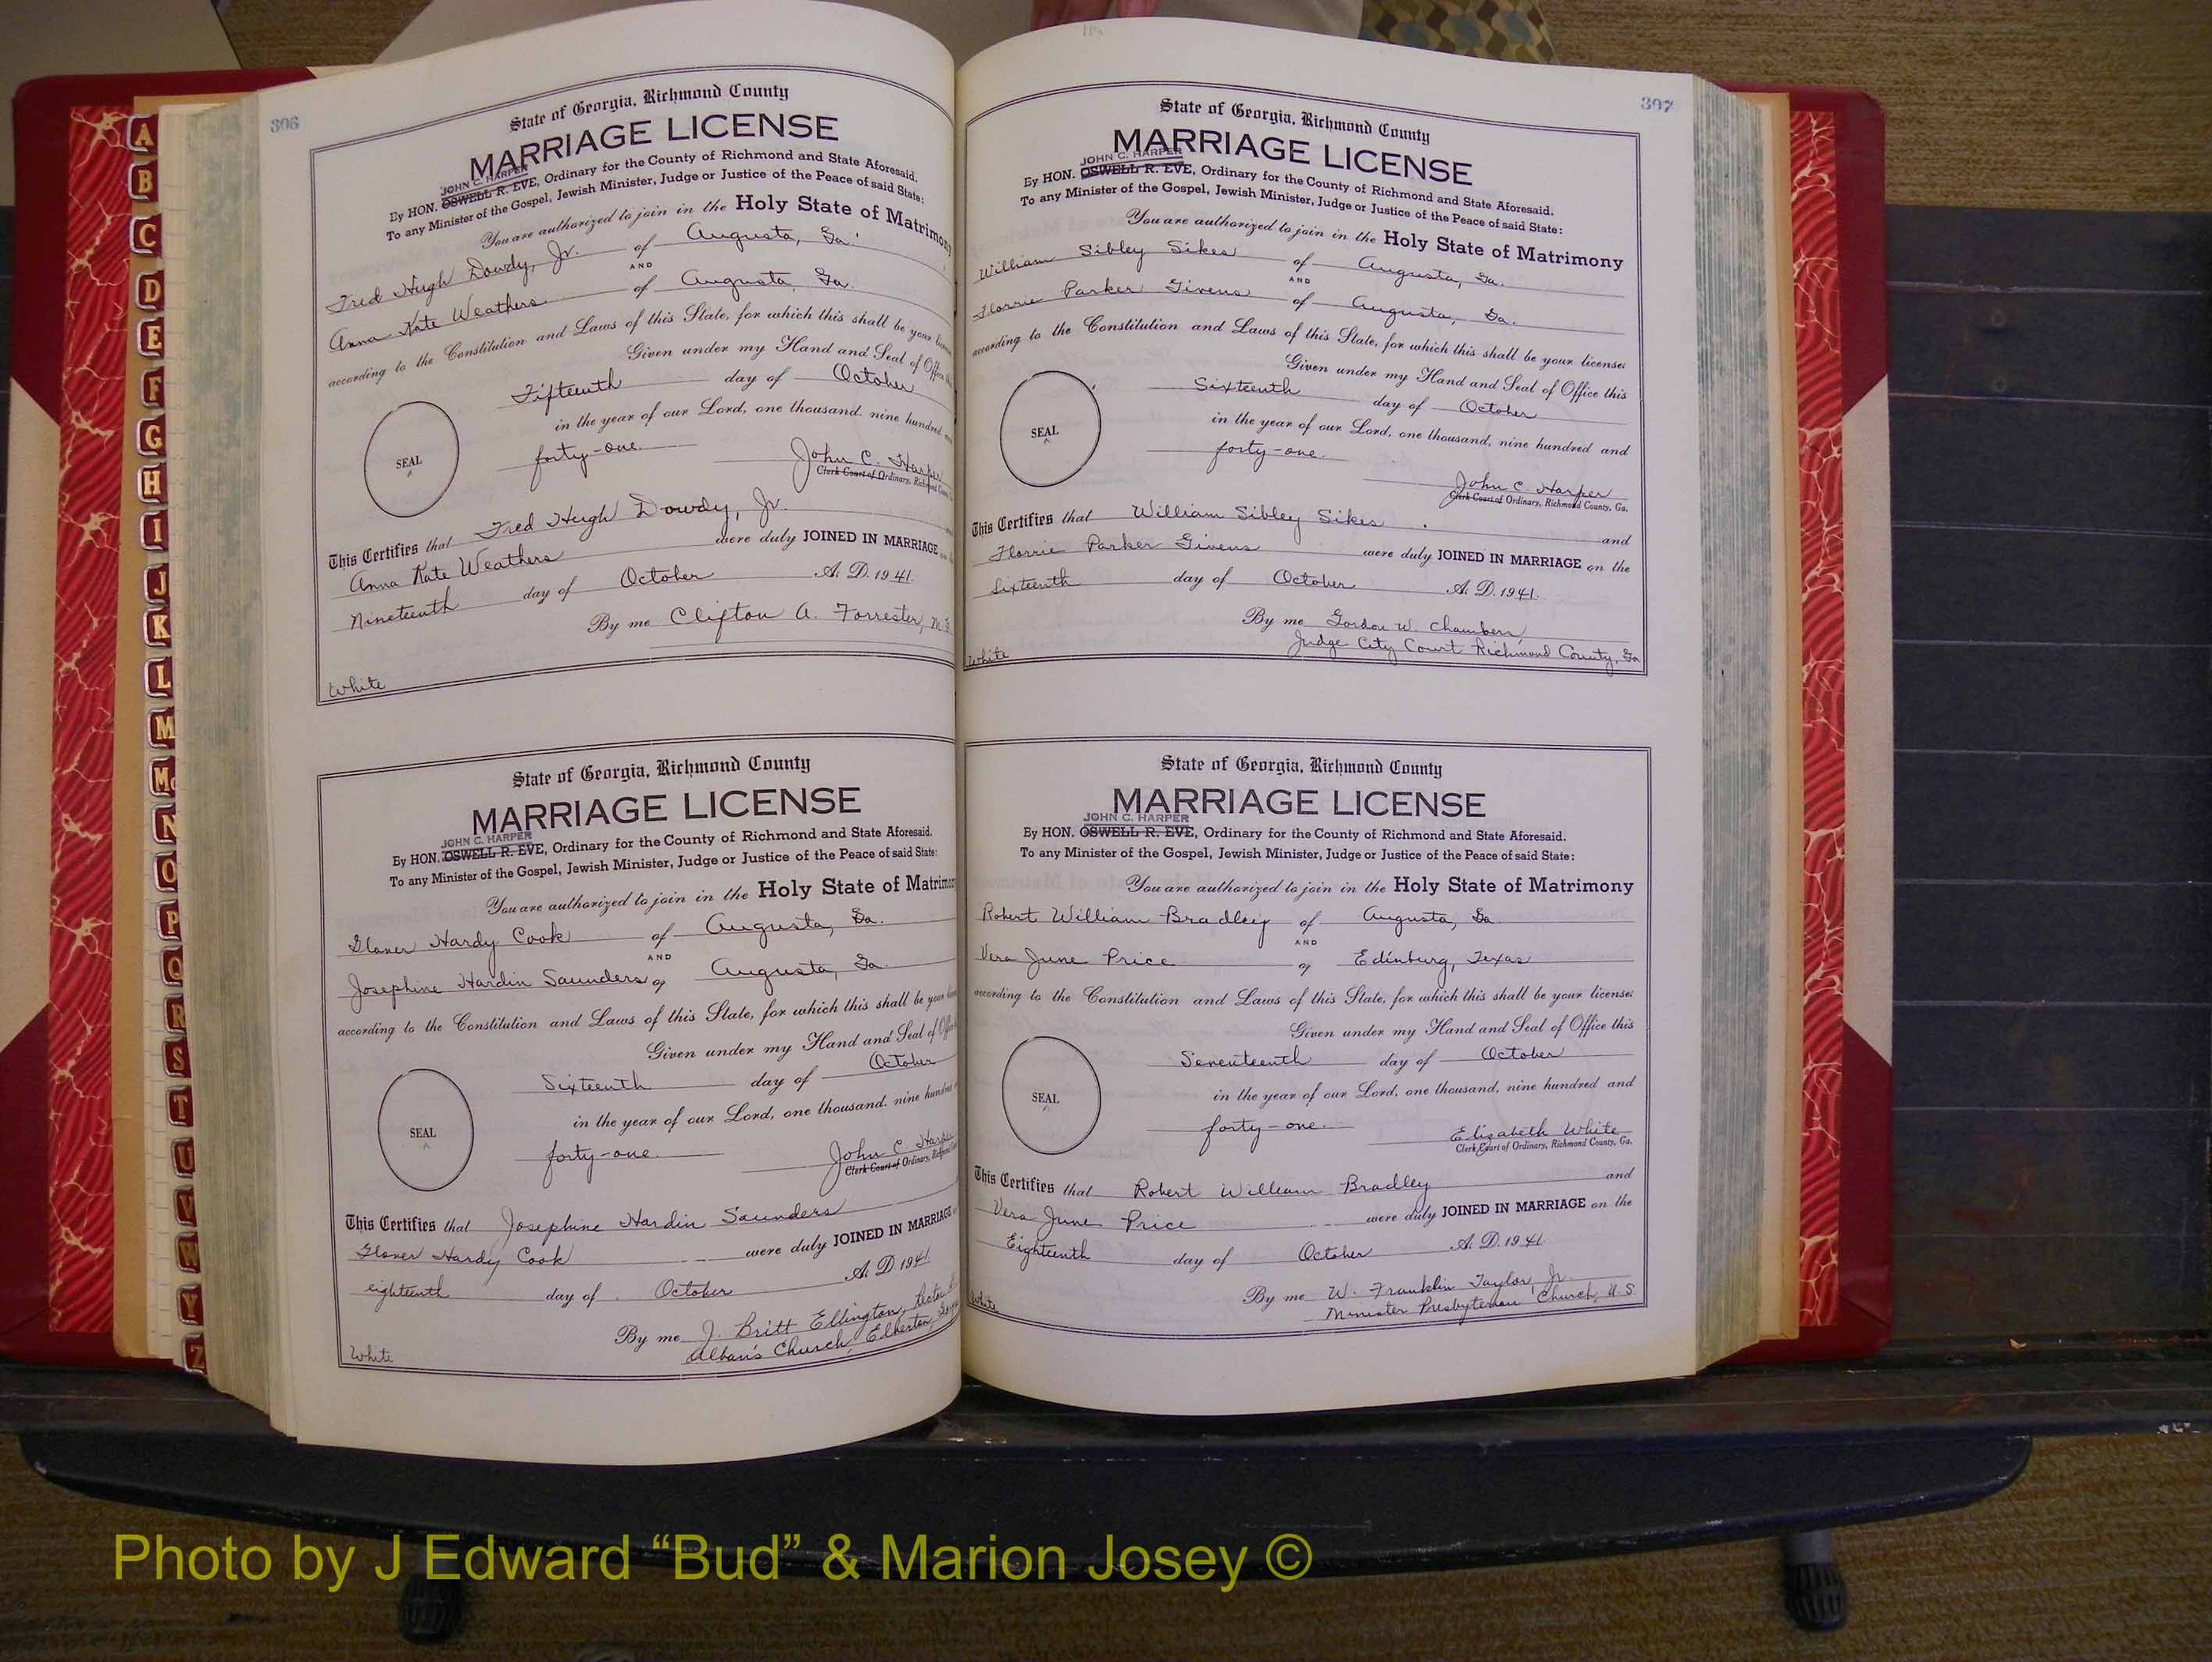 306
State of Georgia, Richmond County
MARRIAGE LICENSE
JOHN C. HARPER
By HON. OSWELL R. EVE, Ordinary for the County of Richmond and State Aforesaid.
To any Minister of the Gospel, Jewish Minister, Judge or Justice of the Peace of said State:
You are authorized to join in the Holy State of Matrimony
Fred Hugh Dowdy, Jr. of Augusta, Ga.
AND
Anna Kate Weathers of Augusta, Ga.
according to the Constitution and Laws of this State, for which this shall be your
Given under my Hand and Seal of Office
Fifteenth day of October
in the year of our Lord, one thousand, nine hundred
SEAL
forty-one.
John C. Harper
Clerk Court of Ordinary, Richmond
This Certifies that Fred Hugh Dowdy, Jr.
Anna Kate Weathers were duly JOINED IN MARRIAGE
Nineteenth day of October A. D. 1941.
By me Clifton A. Forrester,
White
State of Georgia, Richmond County
MARRIAGE LICENSE
JOHN C. HARPER
By HON. OSWELL R. EVE, Ordinary for the County of Richmond and State Aforesaid.
To any Minister of the Gospel, Jewish Minister, Judge or Justice of the Peace of said State:
You are authorized to join in the Holy State of Matrimony
Glover Hardy Cook of Augusta, Ga.
AND
Josephine Hardin Saunders of Augusta, Ga.
according to the Constitution and Laws of this State, for which this shall be your
Given under my Hand and Seal of
Sixteenth day of October
in the year of our Lord, one thousand, nine hundred
SEAL
forty-one.
John C. Harper
Clerk Court of Ordinary,
This Certifies that Josephine Hardin Saunders
Glover Hardy Cook were duly JOINED IN MARRIAGE
eighteenth day of October A. D. 1941.
By me J. Britt Ellington, Rector
Alban's Church, Elberton,
White
307
State of Georgia, Richmond County
MARRIAGE LICENSE
JOHN C. HARPER
By HON. OSWELL R. EVE, Ordinary for the County of Richmond and State Aforesaid.
To any Minister of the Gospel, Jewish Minister, Judge or Justice of the Peace of said State:
You are authorized to join in the Holy State of Matrimony
William Sibley Sikes of Augusta, Ga.
AND
Florrie Parker Givens of Augusta, Ga.
according to the Constitution and Laws of this State, for which this shall be your license:
Given under my Hand and Seal of Office this
Sixteenth day of October
in the year of our Lord, one thousand, nine hundred and
SEAL
forty-one.
John C. Harper
Clerk Court of Ordinary, Richmond County, Ga.
This Certifies that William Sibley Sikes and
Florrie Parker Givens were duly JOINED IN MARRIAGE on the
Sixteenth day of October A. D. 1941.
By me Gordon W. Chambers,
Judge City Court Richmond County, Ga
White
State of Georgia, Richmond County
MARRIAGE LICENSE
JOHN C. HARPER
By HON. OSWELL R. EVE, Ordinary for the County of Richmond and State Aforesaid.
To any Minister of the Gospel, Jewish Minister, Judge or Justice of the Peace of said State:
You are authorized to join in the Holy State of Matrimony
Robert William Bradley of Augusta, Ga.
AND
Vera June Price of Edinburg, Texas
according to the Constitution and Laws of this State, for which this shall be your license:
Given under my Hand and Seal of Office this
Seventeenth day of October
in the year of our Lord, one thousand, nine hundred and
SEAL
forty-one.
Elizabeth White
Clerk Court of Ordinary, Richmond County, Ga.
This Certifies that Robert William Bradley and
Vera June Price were duly JOINED IN MARRIAGE on the
Eighteenth day of October A. D. 1941.
By me W. Franklin Taylor, Jr.
Minister Presbyterian Church, U.S.
White
A
B
C
D
E
F
G
H
I
J
K
L
M
Mc
N
O
P
Q
R
S
T
U
V
W
Y
Z
Photo by J Edward “Bud” & Marion Josey ©